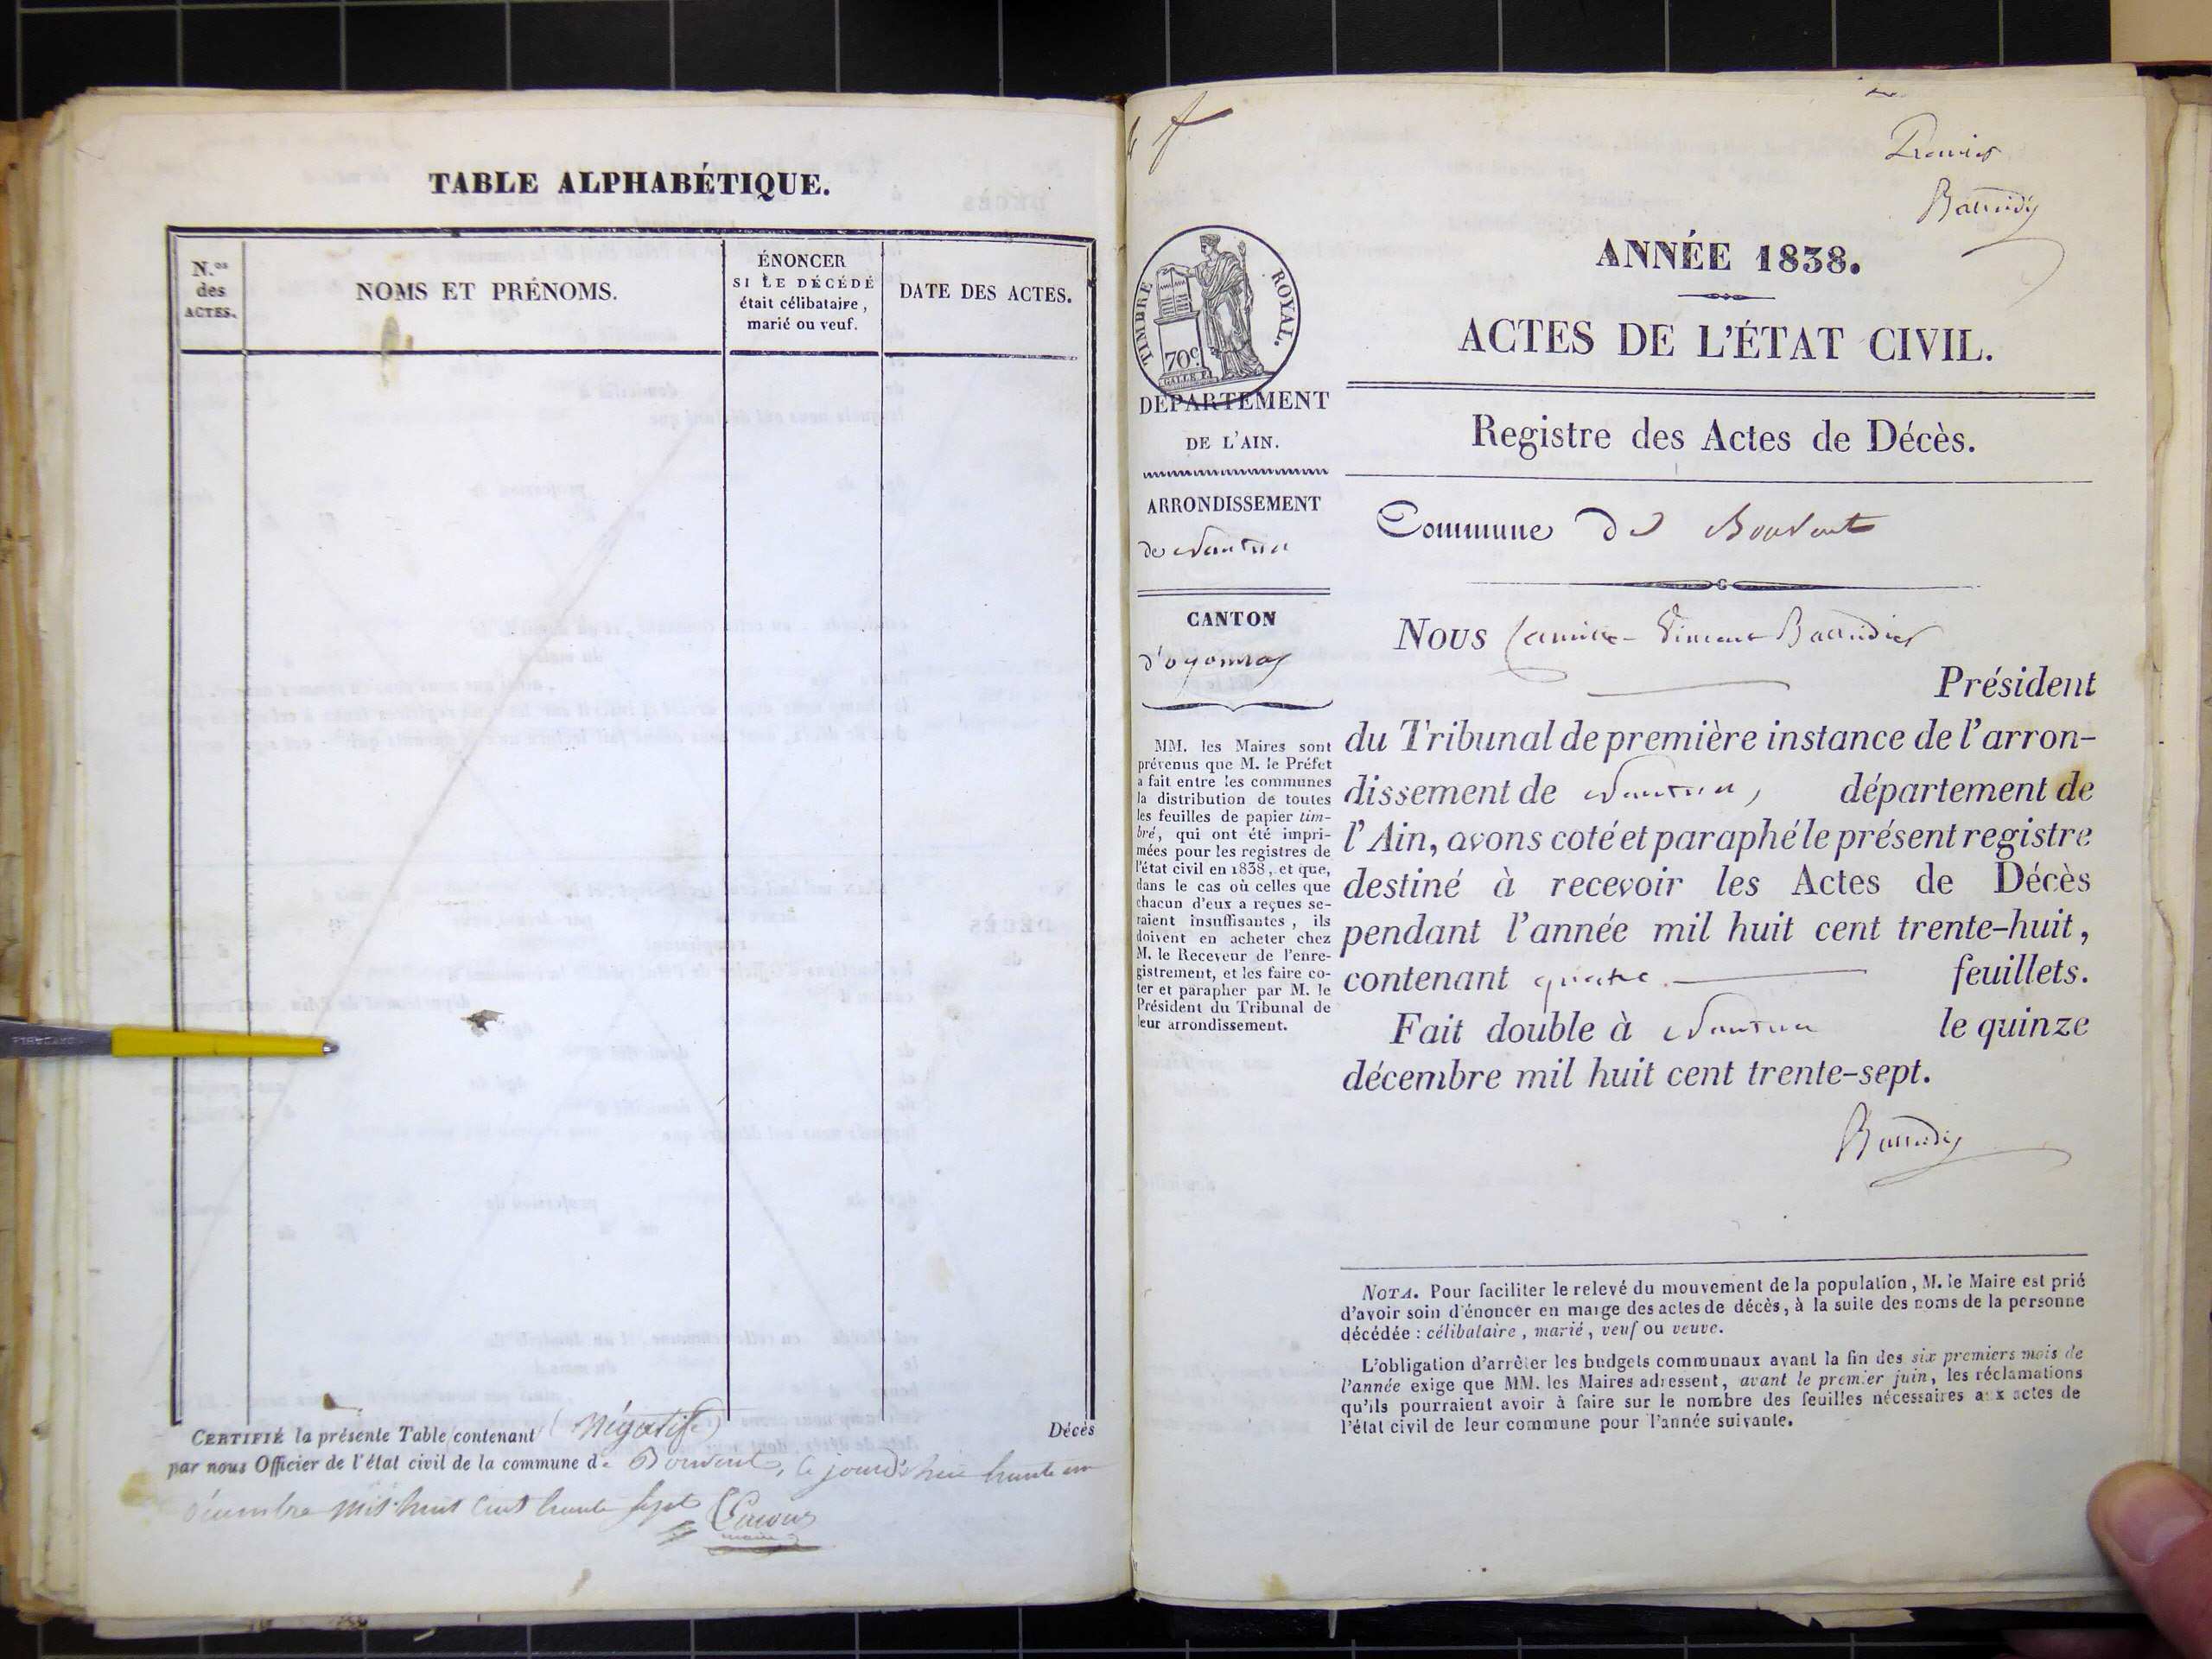 TABLE ALPHABÉTIQUE.
N.os
des
ACTES.
NOMS ET PRÉNOMS.
ÉNONCER
SI LE DÉCÉDÉ
était célibataire,
marié ou veuf.
DATE DES ACTES.
CERTIFIÉ la présente Table contenant (Négatife) Décès
par nous Officier de l'état civil de la commune de Bouvent, ce jourd'hui trente un
décembre mil huit cent trente sept
maire
Premier
TIMBRE ROYAL.
70c
GALLE F.
DÉPARTEMENT
DE L'AIN.
ARRONDISSEMENT
de Nantua
CANTON
d'oyonnax
MM. les Maires sont
prévenus que M. le Préfet
a fait entre les communes
la distribution de toutes
les feuilles de papier tim-
bré, qui ont été impri-
mées pour les registres de
l'état civil en 1838, et que,
dans le cas où celles que
chacun d'eux a reçues se-
raient insuffisantes, ils
doivent en acheter chez
M. le Receveur de l'enre-
gistrement, et les faire co-
ter et parapher par M. le
Président du Tribunal de
leur arrondissement.
ANNÉE 1838.
ACTES DE L'ÉTAT CIVIL.
Registre des Actes de Décès.
Commune de Bouvent
Nous Camille-Vincent
Président
du Tribunal de première instance de l'arron-
dissement de Nantua, département de
l'Ain, avons coté et paraphé le présent registre
destiné à recevoir les Actes de Décès
pendant l'année mil huit cent trente-huit,
contenant quatre feuillets.
Fait double à Nantua le quinze
décembre mil huit cent trente-sept.
NOTA. Pour faciliter le relevé du mouvement de la population, M. le Maire est prié
d'avoir soin d'énoncer en marge des actes de décès, à la suite des noms de la personne
décédée : célibataire, marié, veuf ou veuve.
L'obligation d'arrêter les budgets communaux avant la fin des six premiers mois de
l'année exige que MM. les Maires adressent, avant le premier juin, les réclamations
qu'ils pourraient avoir à faire sur le nombre des feuilles nécessaires aux actes de
l'état civil de leur commune pour l'année suivante.